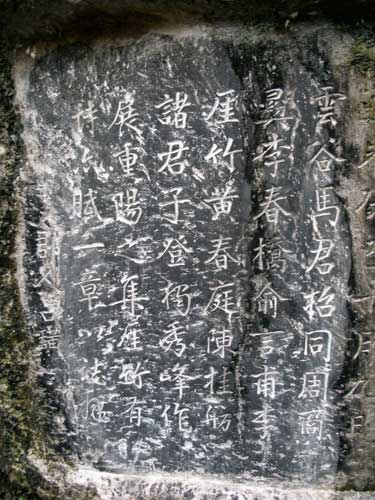 十月九日
雲谷馬君招同周
李春樵俞言甫李
厓竹黄春庭陳桂舫
諸君子登獨秀峰作
展重陽之集厓竹有
賦一章以誌